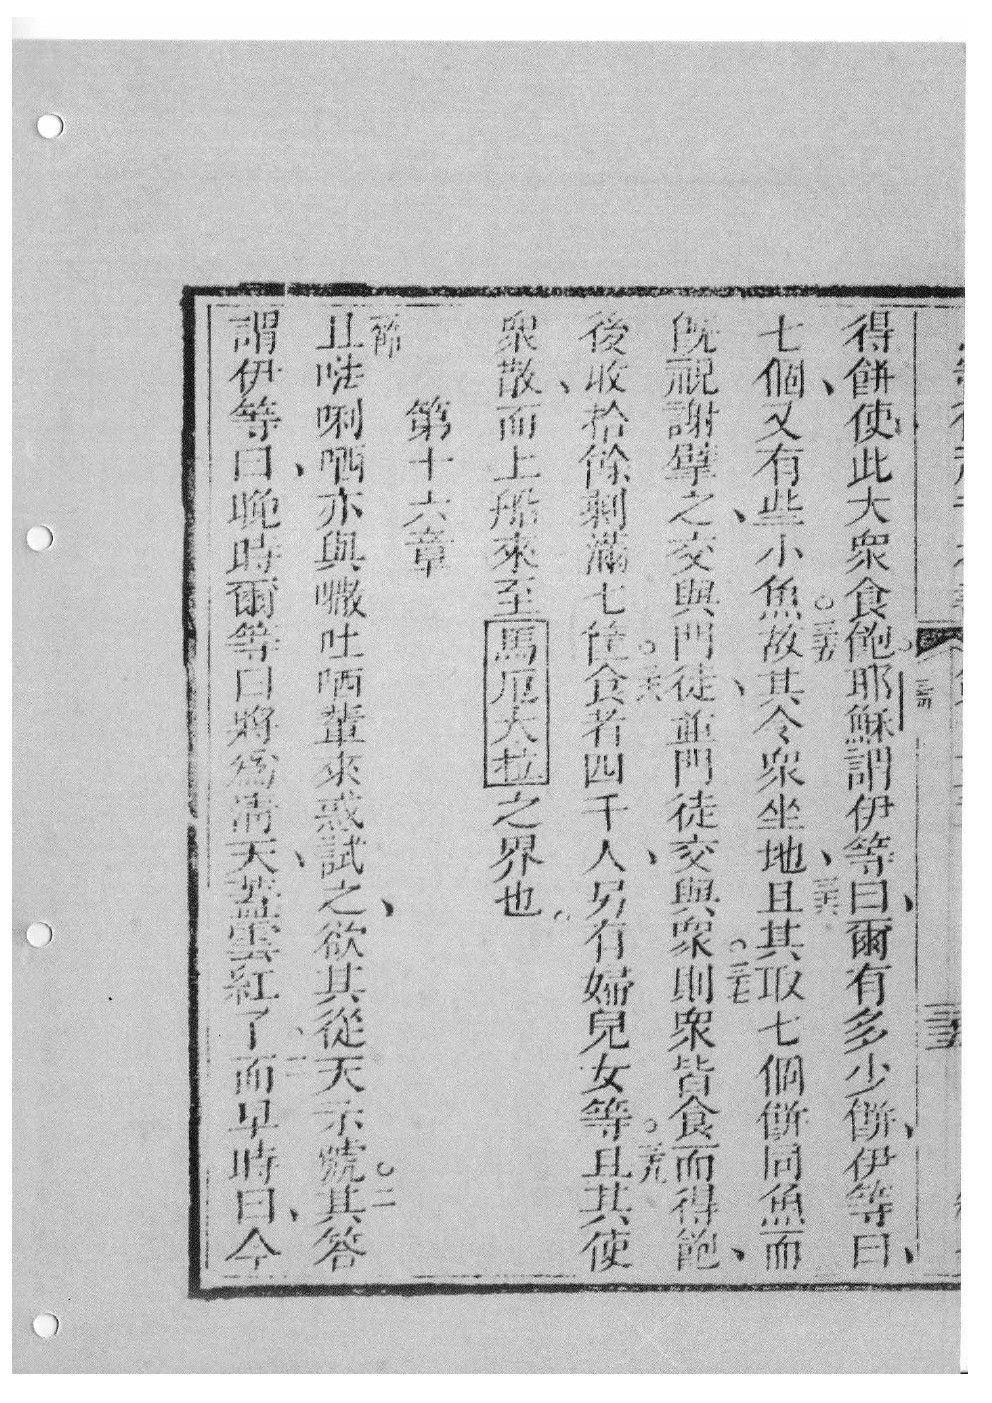 得餅使此大衆食飽耶穌謂伊等曰爾有多少餅伊等曰
七個又有些小魚故其令衆坐地且其取七個餅同魚而
旣祝謝擘之交與門徒並門徒交與衆則衆皆食而得飽
後收拾餘剩滿七筐食者四千人另有婦兒女等且其使
衆散而上船來至馬厄大拉之界也
第十六章
且𠵽唎哂亦與㘔吐哂輩來惑試之欲其從天示號其答
謂伊等曰晚時爾等曰將爲清天蓋雲紅了而早時曰今